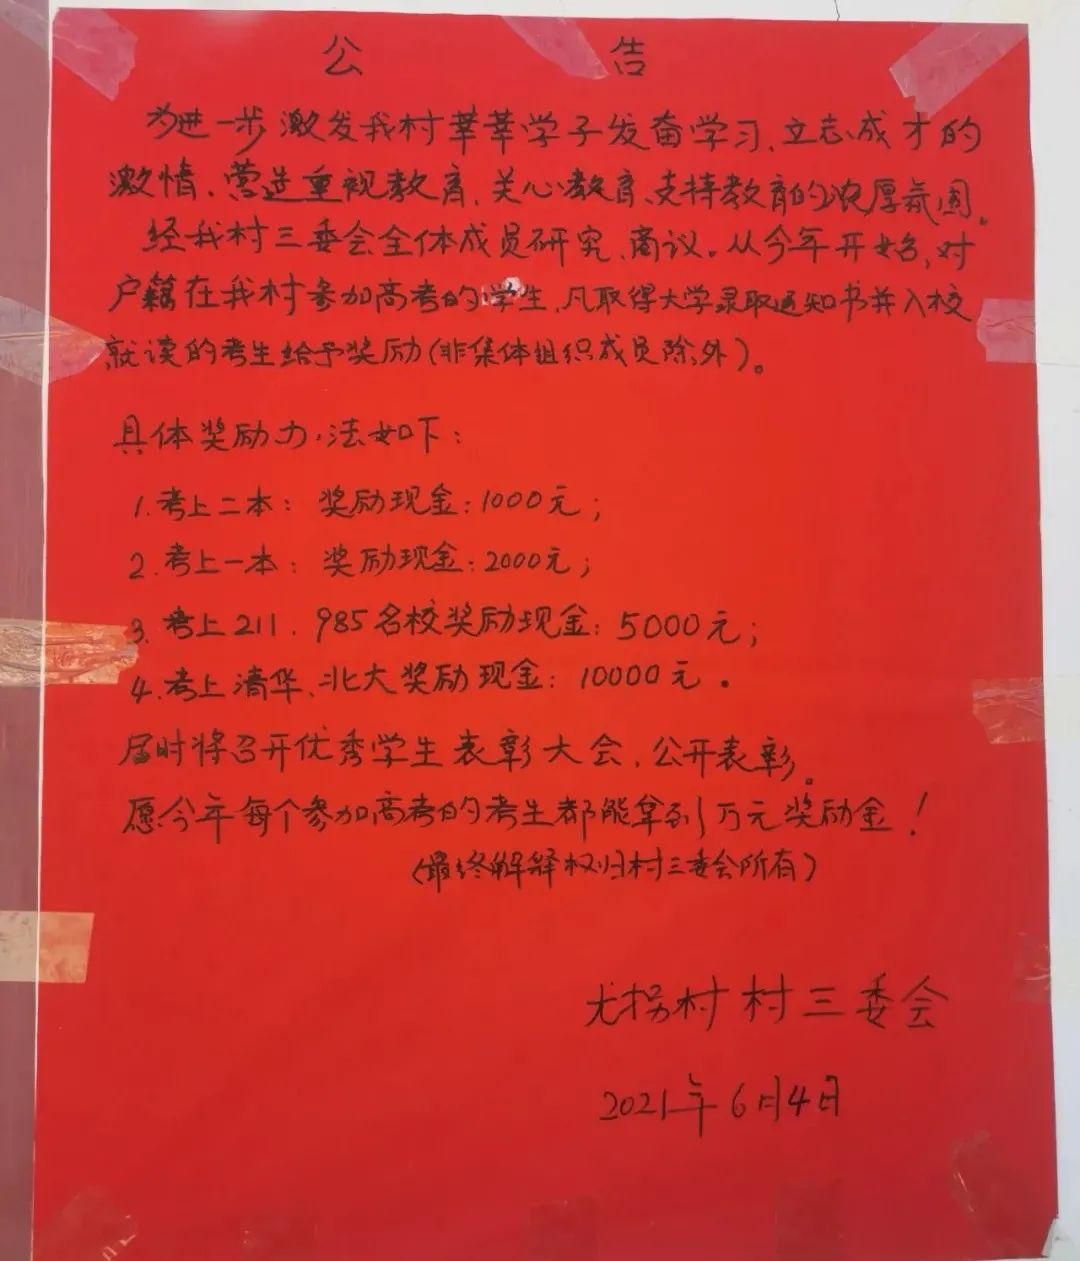 公 告
为进一步激发我村莘莘学子发奋学习、立志成才的
激情、营造重视教育、关心教育、支持教育的浓厚氛围。
经我村三委会全体成员研究、商议。从今年开始,对
户籍在我村参加高考的学生,凡取得大学录取通知书并入校
就读的考生给予奖励(非集体组织成员除外)。
具体奖励办法如下:
1.考上二本: 奖励现金:1000元;
2.考上一本: 奖励现金:2000元;
3.考上211、985名校奖励现金:5000元;
4.考上清华、北大奖励现金:10000元。
届时将召开优秀学生表彰大会,公开表彰。
愿今年每个参加高考的考生都能拿到1万元奖励金!
(最终解释权归村三委会所有)
尤拐村村三委会
2021年6月4日